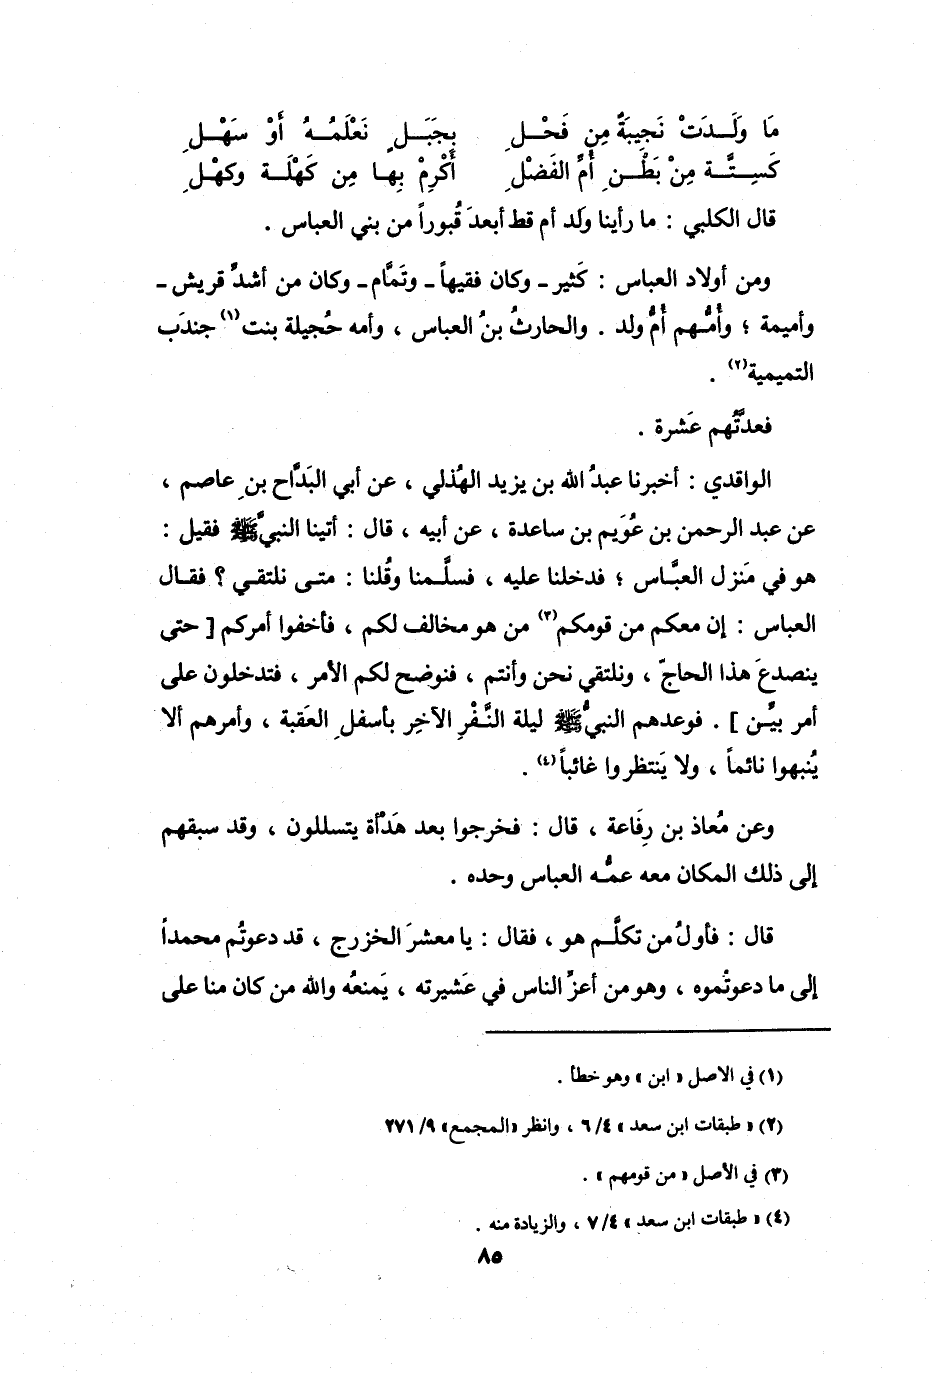 مَا وَلَـدَتْ نَجِيبَةٌ مِن فَحْـلِ بِجَبَـلٍ نَعْلَمُـهُ أَوْ سَهْـلِ
كَسِتَّـةٍ مِنْ بَطْـنِ أُمِّ الفَضْلِ أَكْرِمْ بِهـا مِن كَهْلَـة وكهْلِ
قال الكلبي : ما رأينا ولَد أم قط أبعدَ قُبوراً من بني العباس .
ومن أولاد العباس : كَثير ـ وكان فقيهاً ـ وتَمَّام ـ وكان من أشدِّ قريش ـ
وأميمة ؛ وأُمُّهم أمُّ ولد . والحارثُ بنُ العباس ، وأمه حُجيلة بنت(١) جندَب
التميمية(٢) .
فعدَّتُهم عَشرة .
الواقدي : أخبرنا عبدُ الله بن يزيد الهُذلي ، عن أبي البَدَّاح بن عاصم ،
عن عبد الرحمن بن عُوَيم بن ساعدة ، عن أبيه ، قال : أتينا النبيَّ ﷺ فقيل :
هو في مَنزل العبَّاس ؛ فدخلنا عليه ، فسلَّـمنا وقُلنا : متـى نلتقي ؟ فقـال
العباس : إن معكم من قومكم(٣) من هو مخالف لكم ، فأخفوا أمركم [ حتى
ينصدعَ هذا الحاجّ ، ونلتقي نحن وأنتم ، فنوضح لكم الأمر ، فتدخلون على
أمر بيِّـن ] . فوعدهم النبيُّ ﷺ ليلة النَّفْرِ الآخِر بأسفل العَقبة ، وأمرهم ألا
يُنبهوا نائماً ، ولا يَنتظروا غائباً(٤) .
وعن مُعاذ بن رِفَاعة ، قال : فخرجوا بعد هَدْأة يتسللون ، وقد سبقهم
إلى ذلك المكان معه عمُّـه العباس وحده .
قال : فأولُ من تكلَّـم هو ، فقال : يا معشرَ الخزرج ، قد دعوتُم محمداً
إلى ما دعوتْموه ، وهو من أعزِّ الناس في عَشيرته ، يَمنعُه والله من كان منا على
(١) في الاصل « ابن » وهو خطأ .
(٢) « طبقات ابن سعد » ٤/٦ ، وانظر «المجمع» ٩/٢٧١
(٣) في الأصل « من قومهم » .
(٤) « طبقات ابن سعد » ٤/٧ ، والزيادة منه .
٨٥